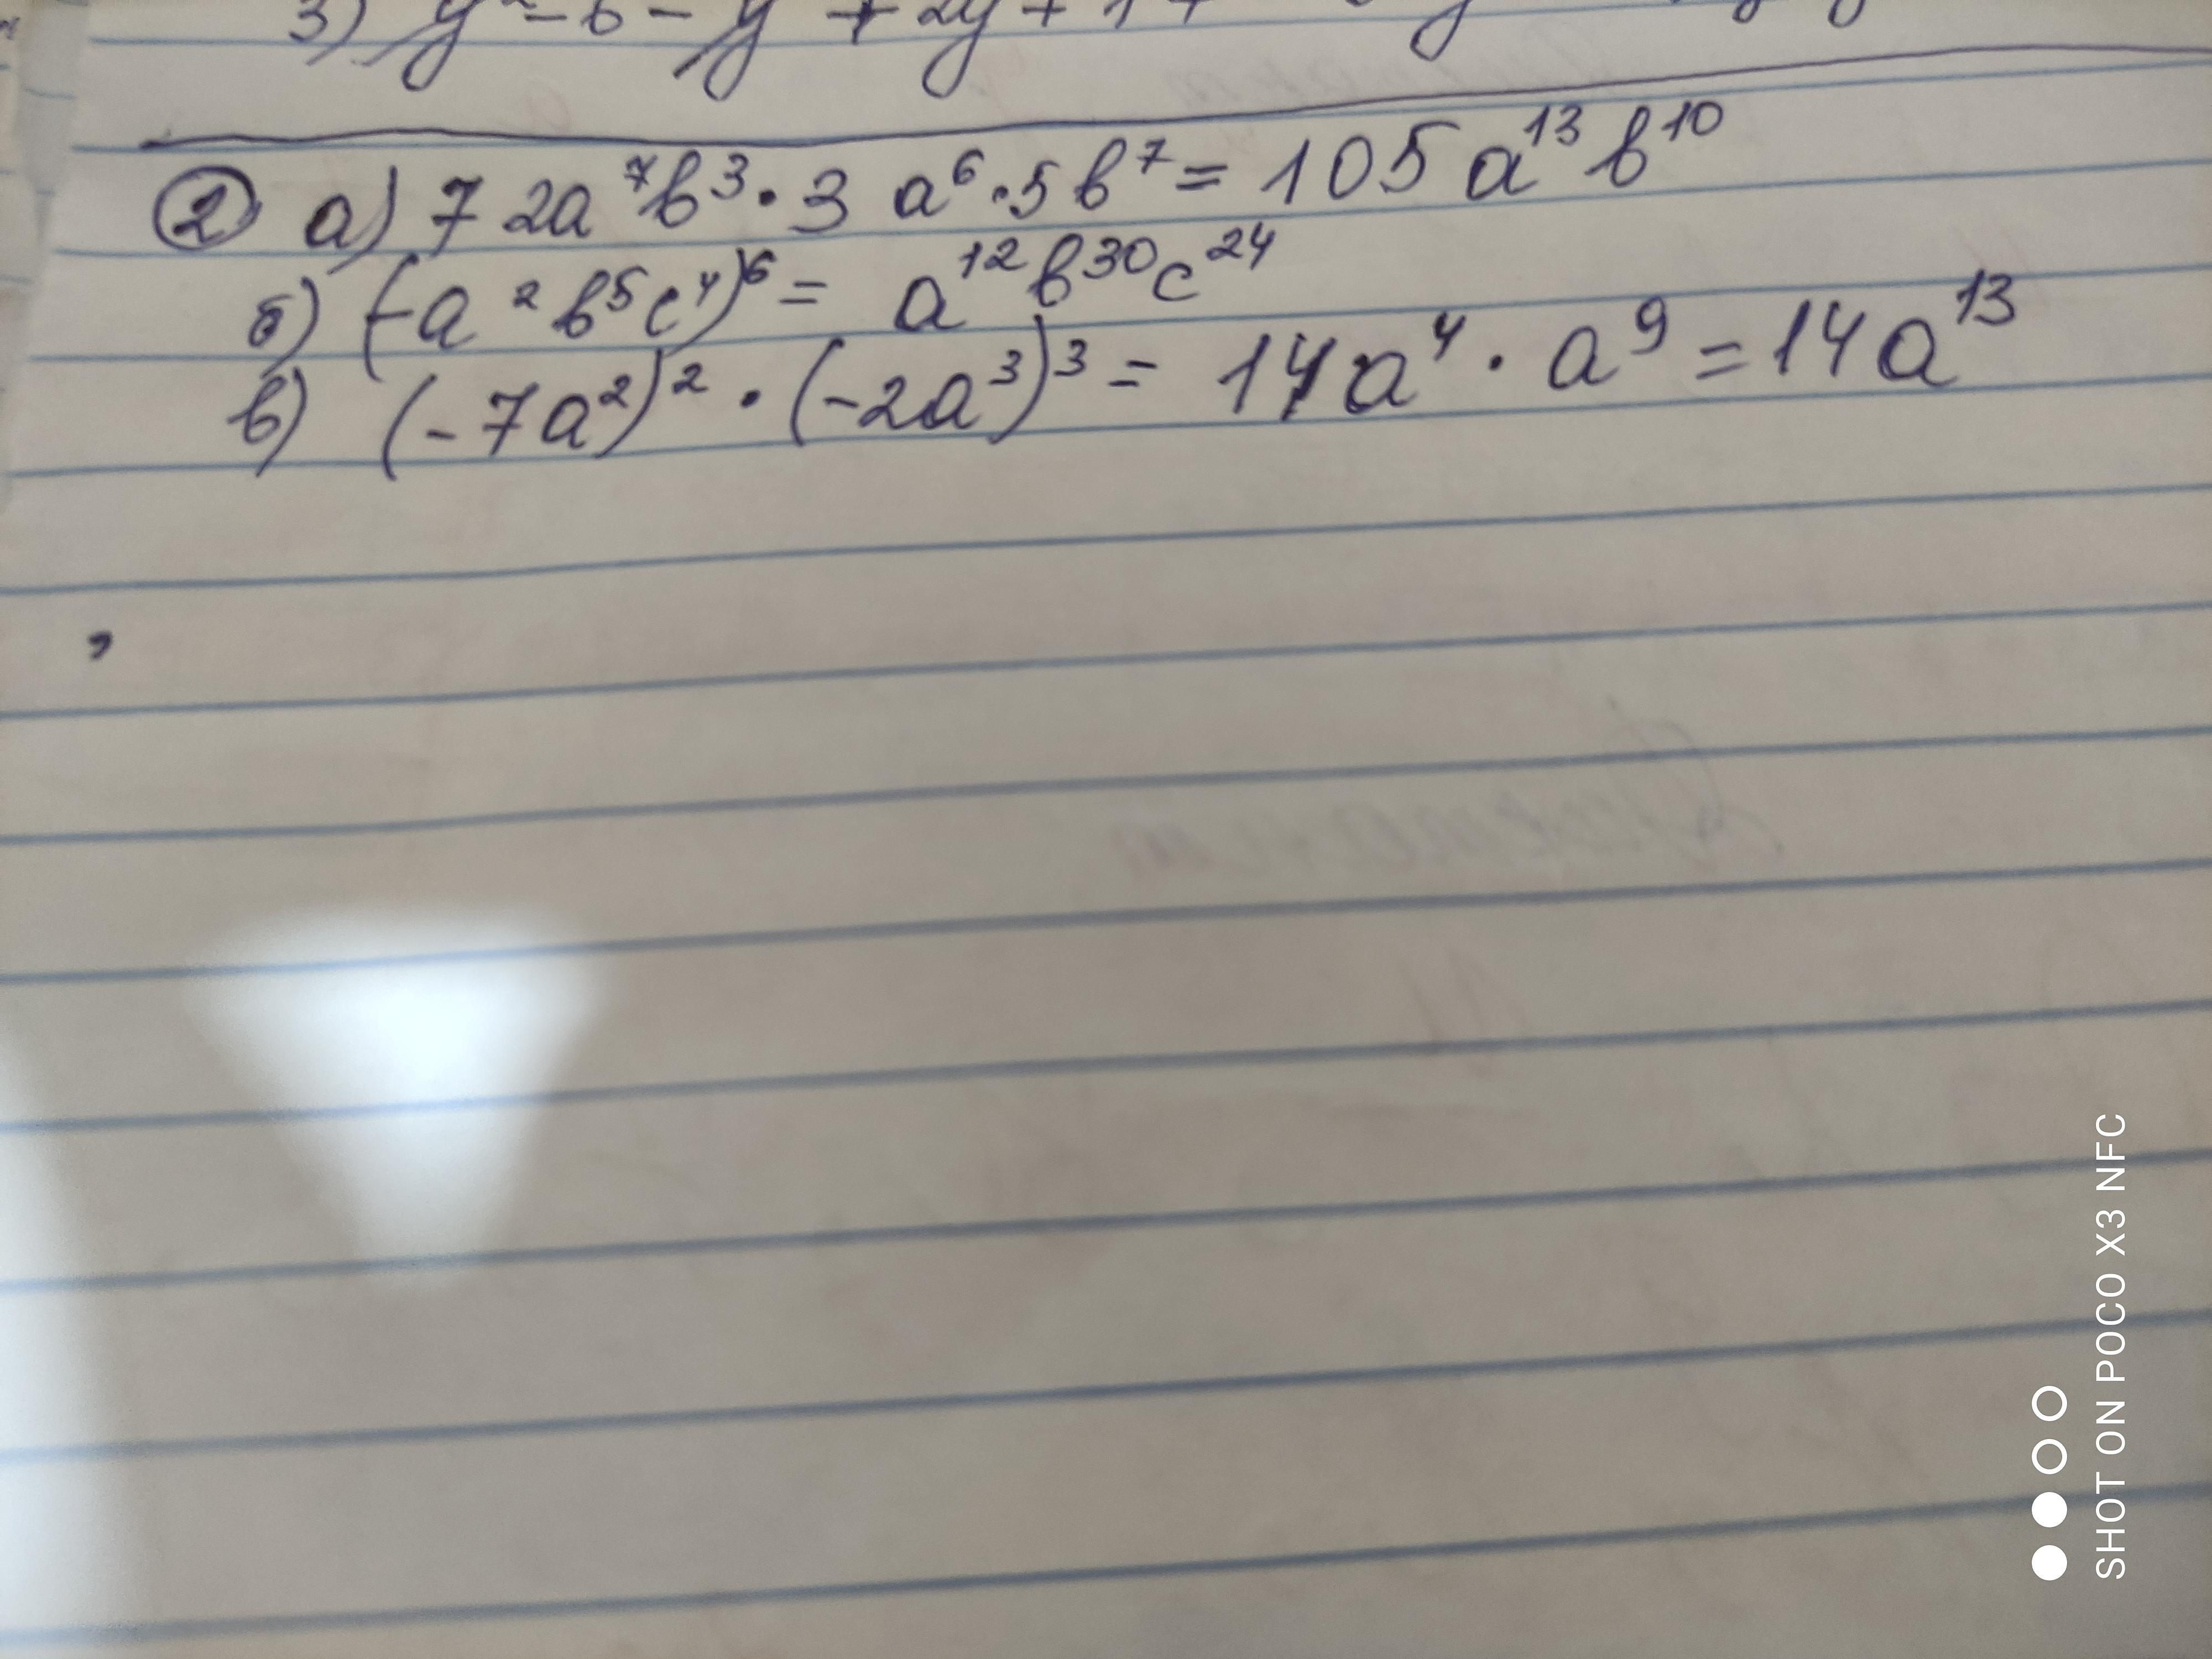 3) y² - 6 - y + 2y + 1 +
② а) 7 2a⁷b³ · 3 a⁶ · 5b⁷ = 105a¹³b¹⁰
б) (-a²b⁵c⁴)⁶ = a¹²b³⁰c²⁴
в) (-7a²)² · (-2a³)³ = 14a⁴ · a⁹ = 14a¹³
SHOT ON POCO X3 NFC